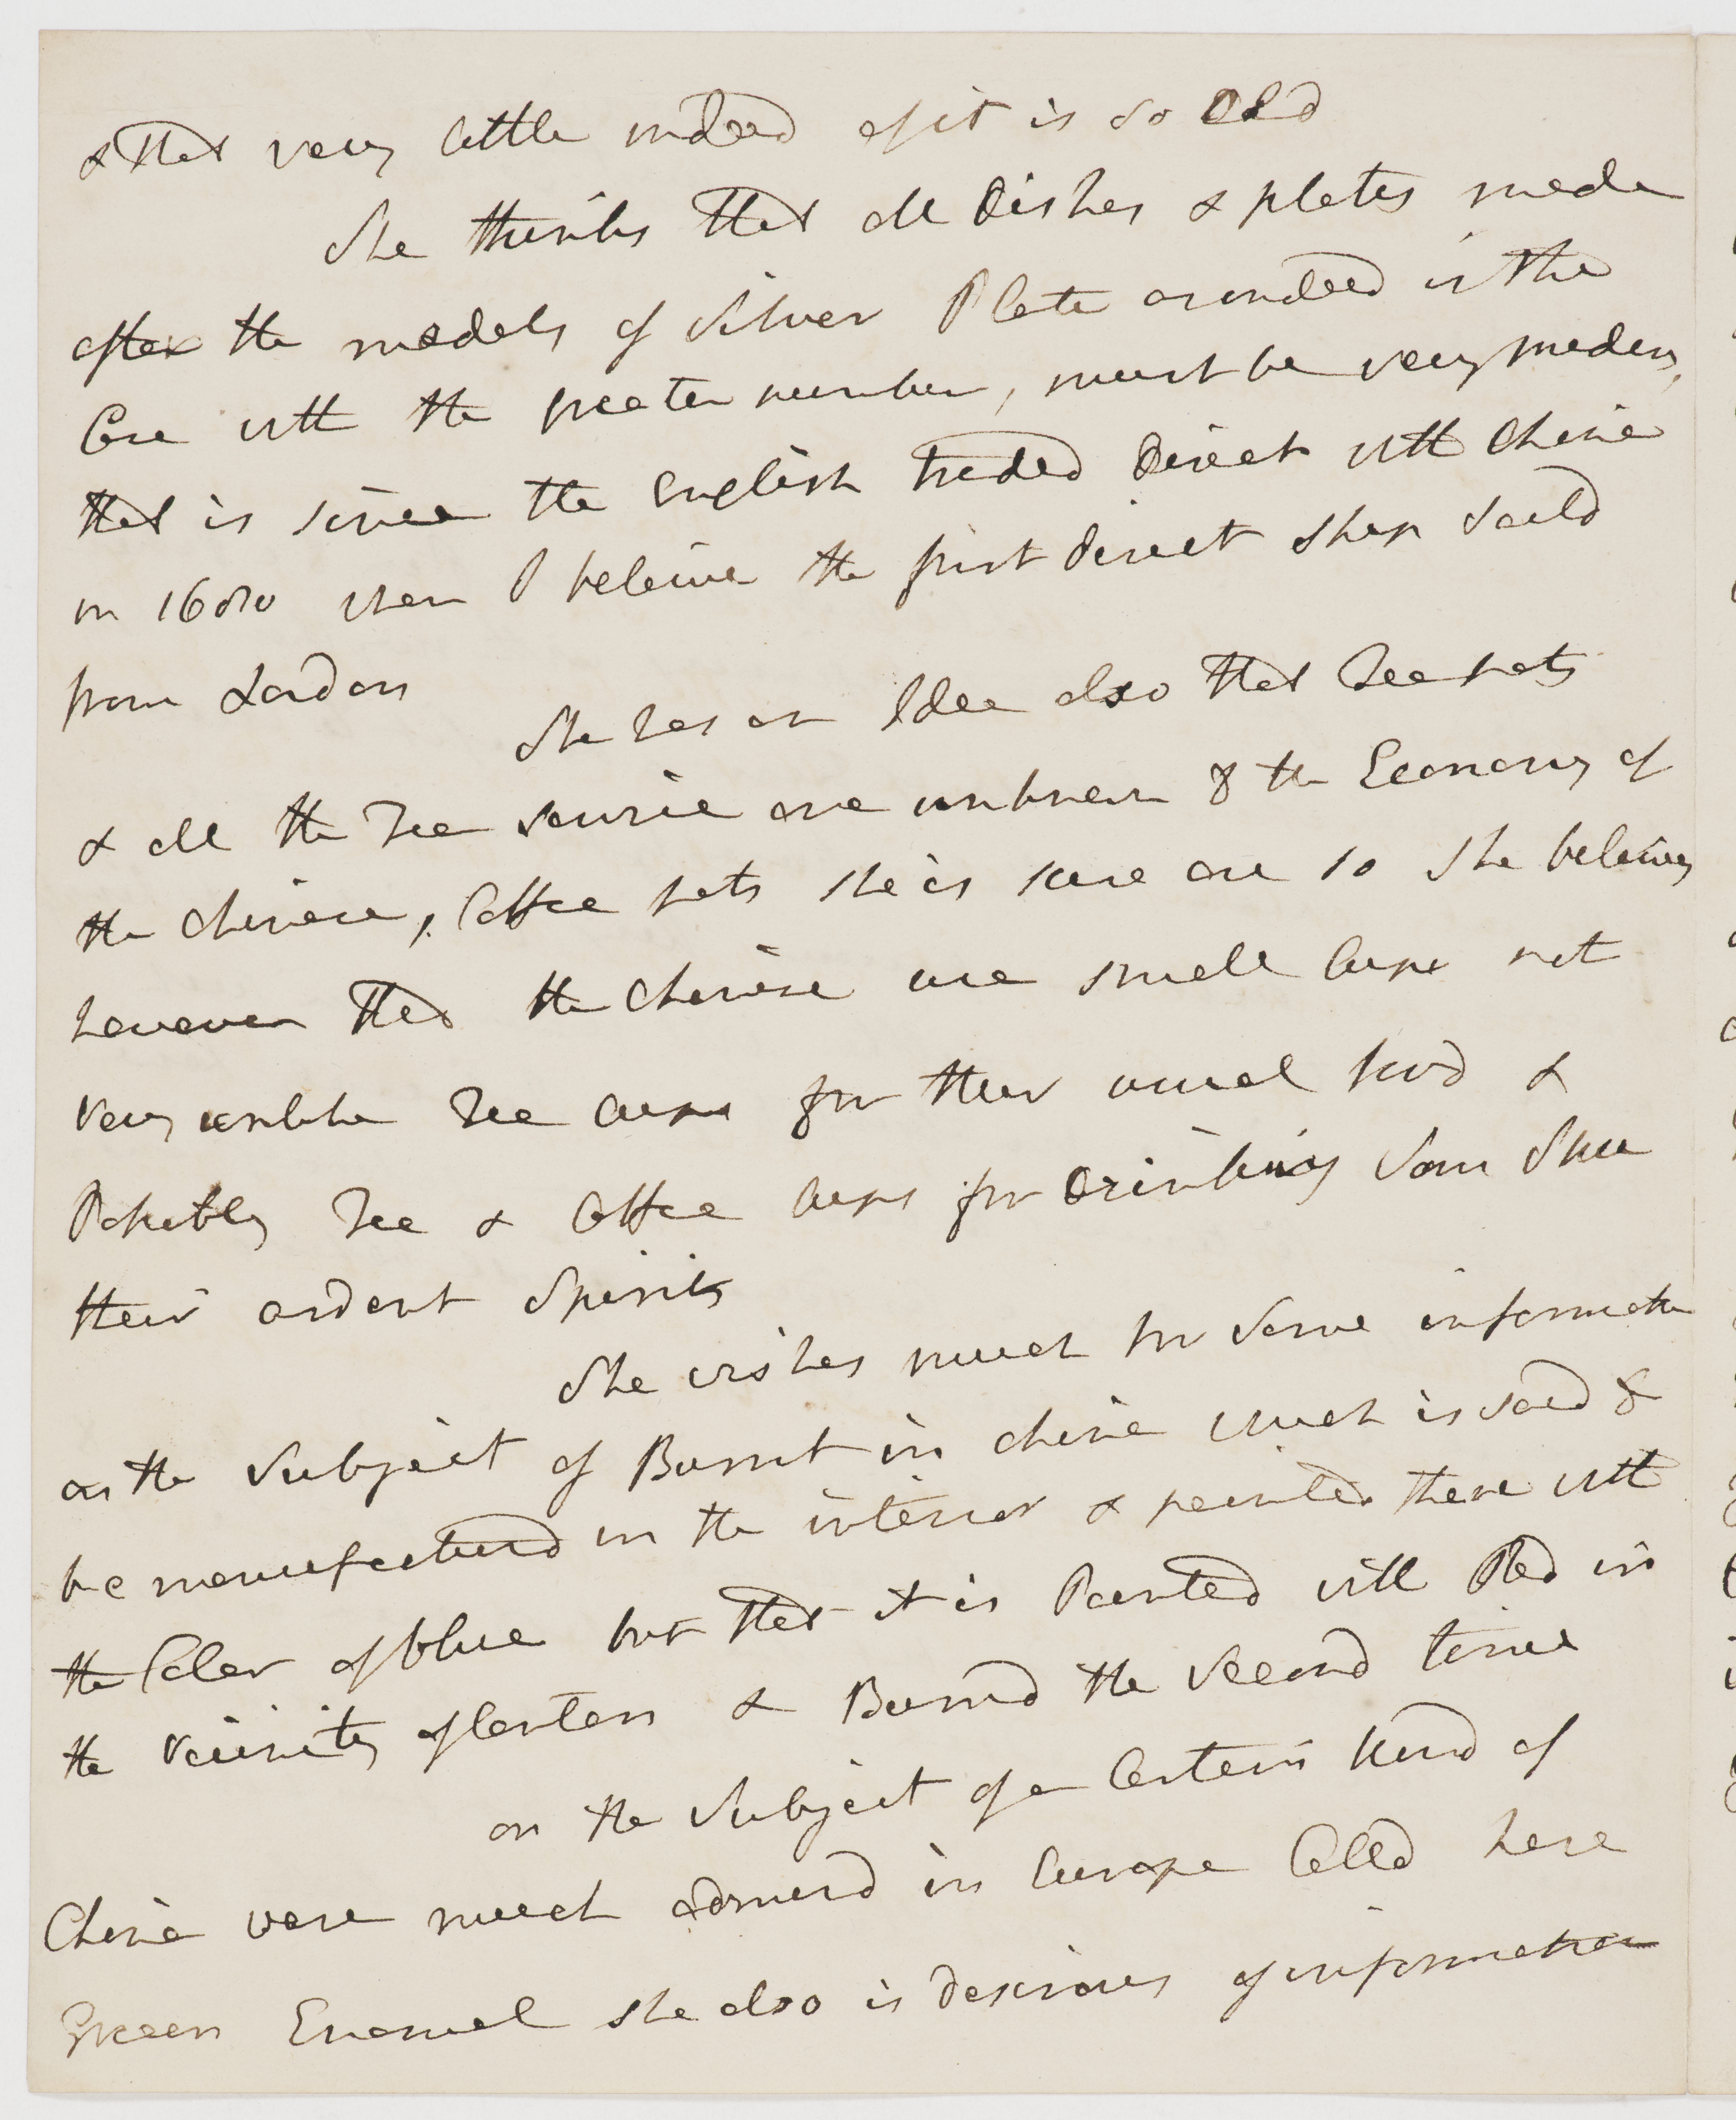 & that very little indeed of it is so Old
She thinks that all Dishes & plates made
after the models of Silver Plate as indeed is the
Case with the greater number, must be very modern,
that is since the English traded Direct with China
in 1680 when I beleive the first direct ship Saild
from London
She has an Idea also that Tea pots
& all the Tea service are unknown to the Economy of
the Chinese, Coffee pots she is sure are so She beleives
however that the Chinese use small Cups not
very unlike Tea Cups for their usual food &
Pobably Tea & Coffee Cups for Drinking Sam Shu
their ardent Spirits
She wishes much for Some information
on the Subject of Burnt in china which is said to
be manufacturd in the interior & painted there with
the Color of blue but that it is Painted with Red in
the vicinity of Canton & Burnd the Second time
on the Subject of a Certain kind of
China ware much admird in Europe Calld here
Green Enamel she also is desirous of information